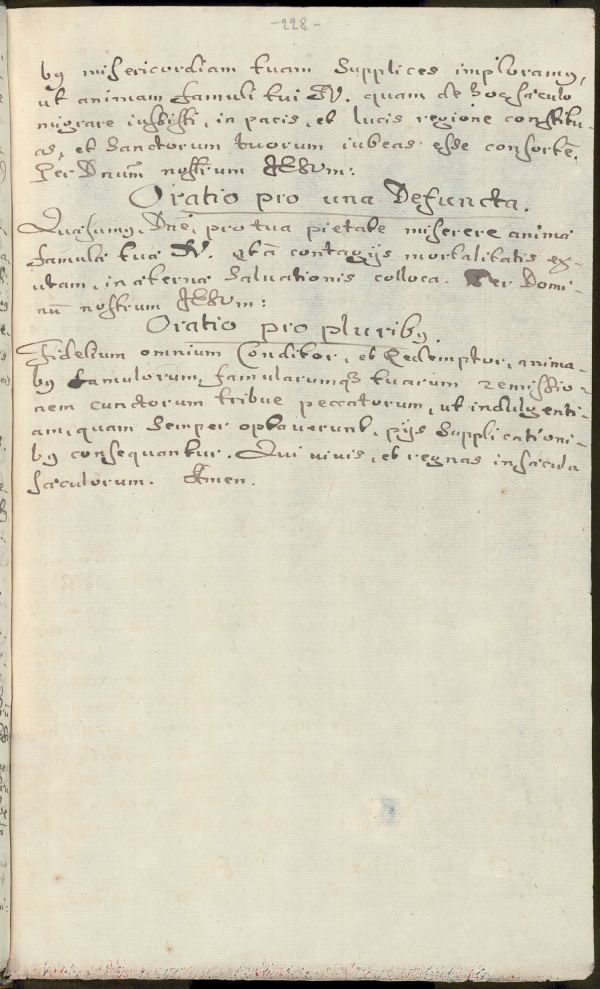 -228-
bꝯ misericordiam tuam Supplices imploramꝯ,
ut animam famuli tui N. quam de hoc sæculo
migrare iussisti, in pacis, et lucis regione constitu-
as, et Sanctorum tuorum iubeas esse consortē.
Per Dnum̄ nostrum JESVm:
Oratio pro una Defuncta.
Quæsumꝯ, Dnē, pro tua pietate miserere animæ
famulæ tuæ N. et à contagijs mortalitatis ex-
utam, in æternæ Salvationis colloca. Per Domi-
nū nostrum JESVm:
Oratio pro pluribꝯ.
Fidelium omnium Conditor, et Redemptor, anima-
bꝯ famulorum, famularumqꝫ tuarum remissio-
nem cunctorum tribue peccatorum, ut indulgenti-
am, quam Semper optaverunt, pijs Supplicationi-
bꝯ consequantur. Qui vivis, et regnas in sæcula
sæculorum. Amen.